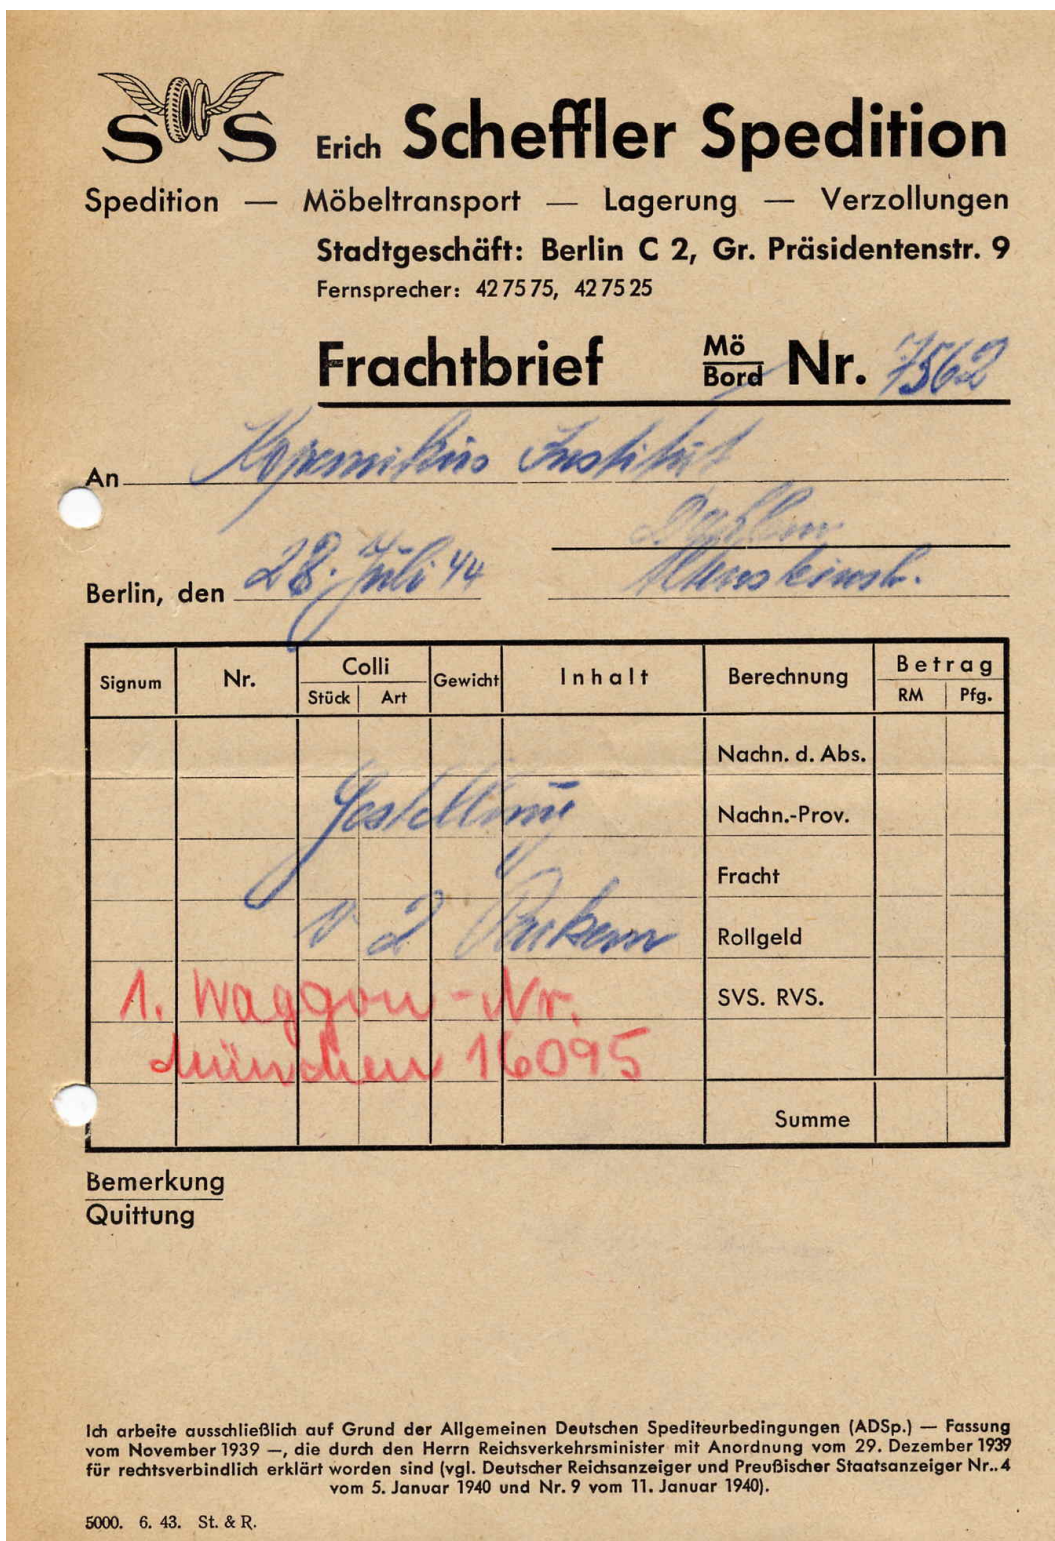 S S
Erich Scheffler Spedition
Spedition — Möbeltransport — Lagerung — Verzollungen
Stadtgeschäft: Berlin C 2, Gr. Präsidentenstr. 9
Fernsprecher: 42 75 75, 42 75 25
Frachtbrief Mö Bord Nr. 7562
An Kopernikus Institut
Dahlem
Berlin, den 28. Juli 44
Altensteinstr.
Signum Nr. Colli Stück Art Gewicht Inhalt Berechnung Betrag RM Pfg.
Nachn. d. Abs.
Gestellung Nachn.-Prov.
Fracht
v 2 Packern Rollgeld
1. Waggon-Nr. SVS. RVS.
München 16095
Summe
Bemerkung
Quittung
Ich arbeite ausschließlich auf Grund der Allgemeinen Deutschen Spediteurbedingungen (ADSp.) — Fassung
vom November 1939 —, die durch den Herrn Reichsverkehrsminister mit Anordnung vom 29. Dezember 1939
für rechtsverbindlich erklärt worden sind (vgl. Deutscher Reichsanzeiger und Preußischer Staatsanzeiger Nr..4
vom 5. Januar 1940 und Nr. 9 vom 11. Januar 1940).
5000. 6. 43. St. & R.